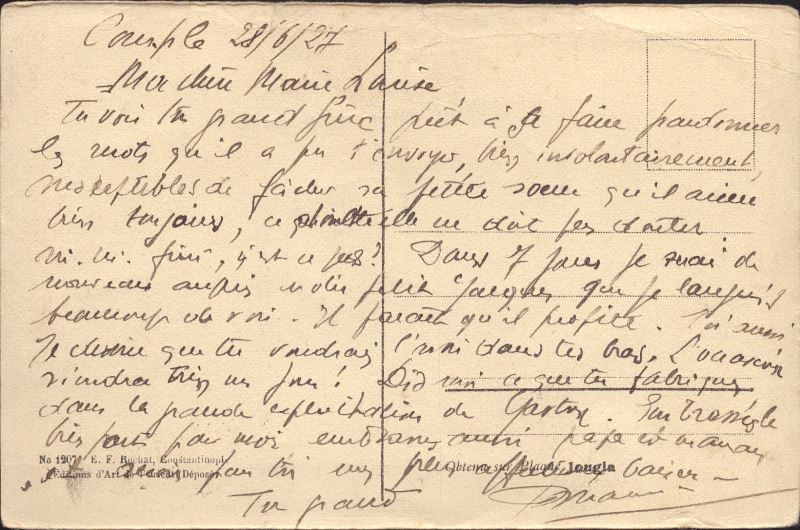 28/6/27
Ma chère Marie Louise
Tu vois ton grand frère prêt à se faire pardonner
les mots qu'il a pu t'envoyer, bien involontairement,
susceptibles de fâcher sa petite sœur qu'il aime
bien toujours, ce elle ne doit pas douter
ni. ni. fini, n'est ce pas? Dans 7 jours je serai de
nouveau auprès notre petit Jacques que je languis
beaucoup de voir. Il paraît qu'il profite. Toi aussi
je devine que tu voudrais l'avoir dans tes bras. L'occasion
viendra bien un jour! Dis moi ce que tu fabriques
dans la grande exploitation de Gaston. Embrasse le
bien fort pour moi embrasse aussi papa et maman
et pour toi un plus affectueux baiser -
Ton grand
No 1207. E. F. Rochat, Constantinople
Editions d'Art de l'Orient. Déposé
Obtenu sur Plaque Jougla